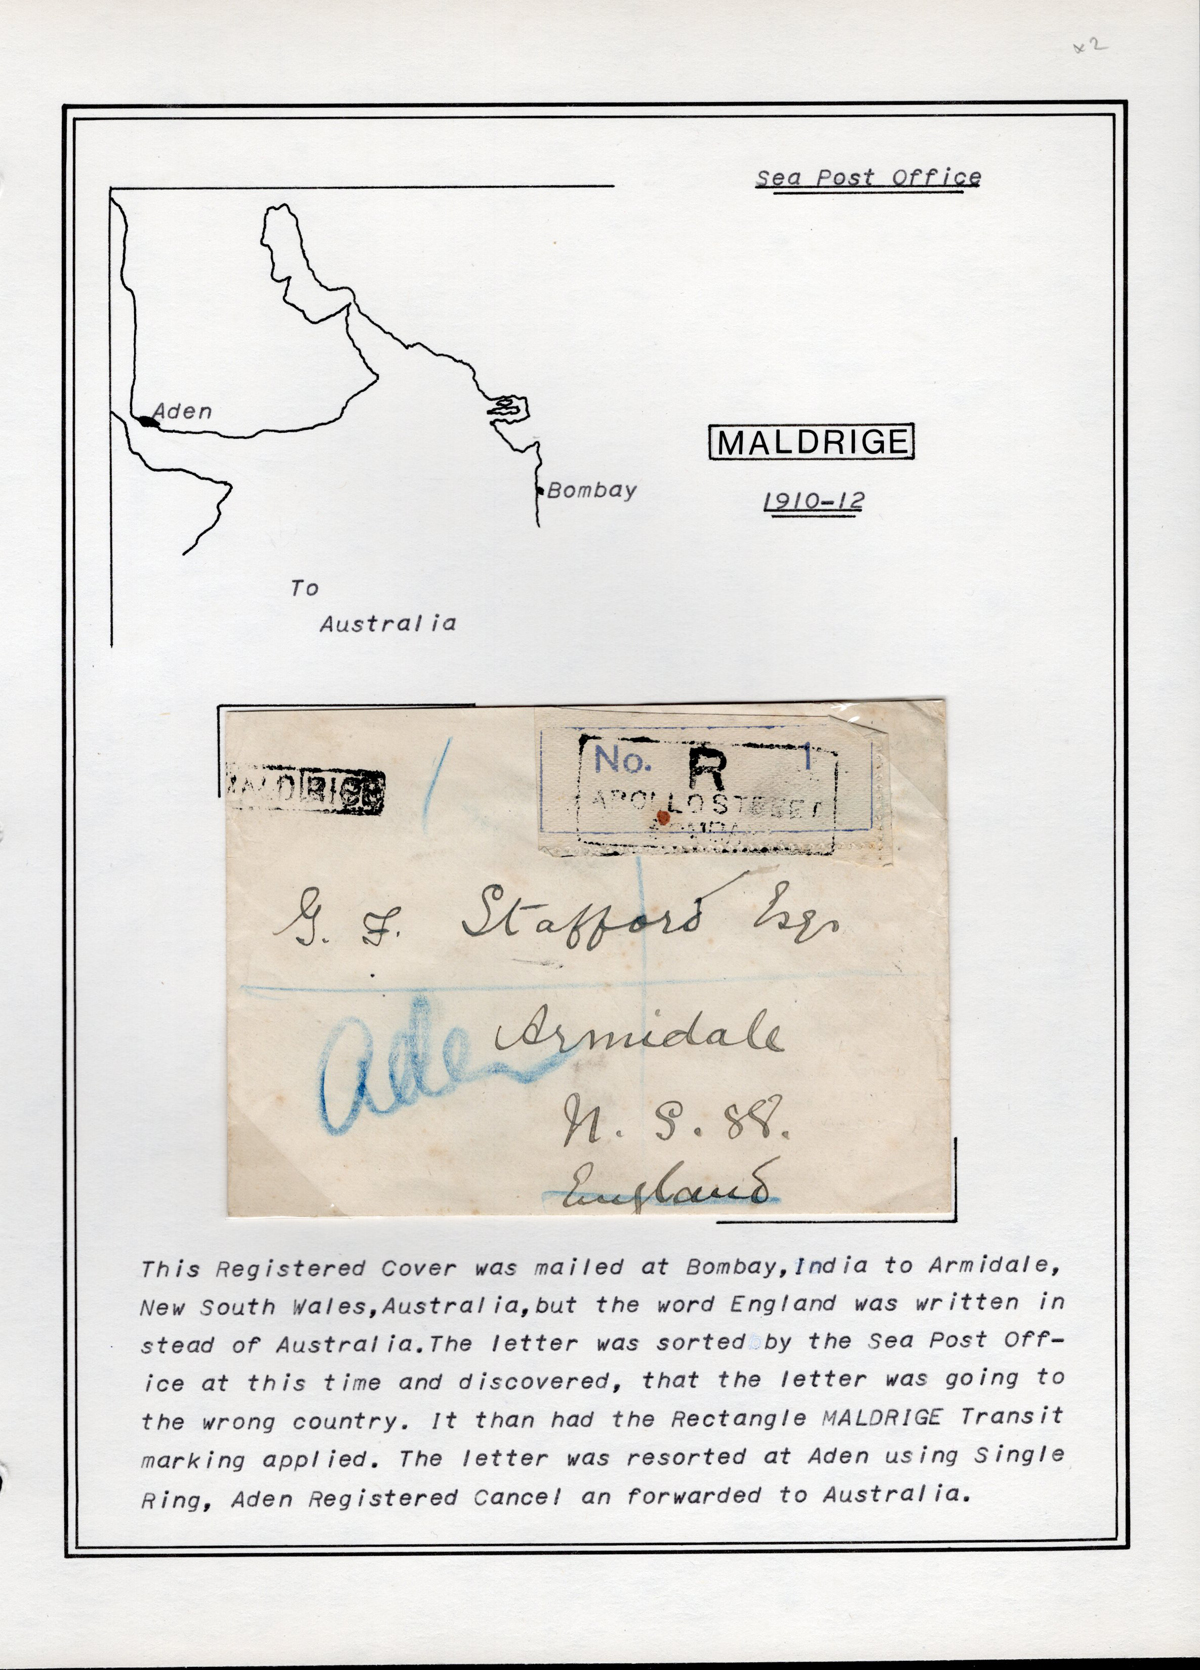 x2
Sea Post Office
Aden
MALDRIGE
1910-12
Bombay
To
Australia
No. R 1
APOLLO STREET
G. F. Stafford Esqr
Aden
Armidale
N. S. W.
England
This Registered Cover was mailed at Bombay,India to Armidale,
New South Wales,Australia,but the word England was written in
stead of Australia.The letter was sorted by the Sea Post Off-
ice at this time and discovered, that the letter was going to
the wrong country. It than had the Rectangle MALDRIGE Transit
marking applied. The letter was resorted at Aden using Single
Ring, Aden Registered Cancel an forwarded to Australia.